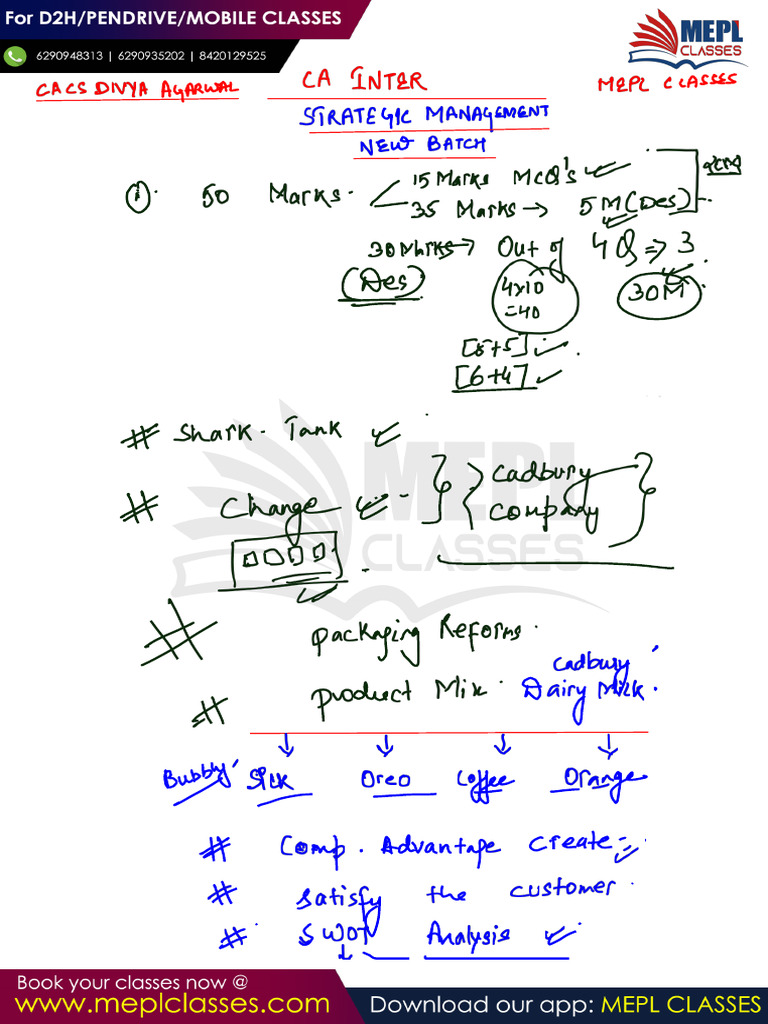 For D2H/PENDRIVE/MOBILE CLASSES
6290948313 | 6290935202 | 8420129525
MEPL
CLASSES
CA CS DIVYA AGARWAL
CA INTER
MEPL CLASSES
STRATEGIC MANAGEMENT
NEW BATCH
① 50 Marks.
15 Marks MCQ's
35 Marks → 5M (Des)
30 Marks → Out of 4Q ⇒ 3
(Des)
4×10
=40
30M
[5+5]
[6+4]
# Shark Tank
# Change
Cadbury
Company
MEPL
CLASSES
# Packaging Reforms.
# Product Mix. Cadbury
Dairy Milk.
Bubbly Silk Oreo Coffee Orange
# Comp. Advantage Create
# Satisfy the customer
# SWOT Analysis
Book your classes now @
www.meplclasses.com
Download our app: MEPL CLASSES